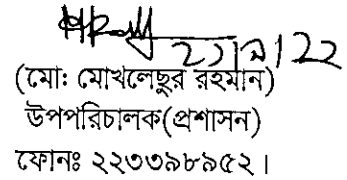 ২১/৯/২২
(মো: মোখলেছুর রহমান)
উপপরিচালক(প্রশাসন)
ফোনঃ ২২৩৩৯৮৯৫২।